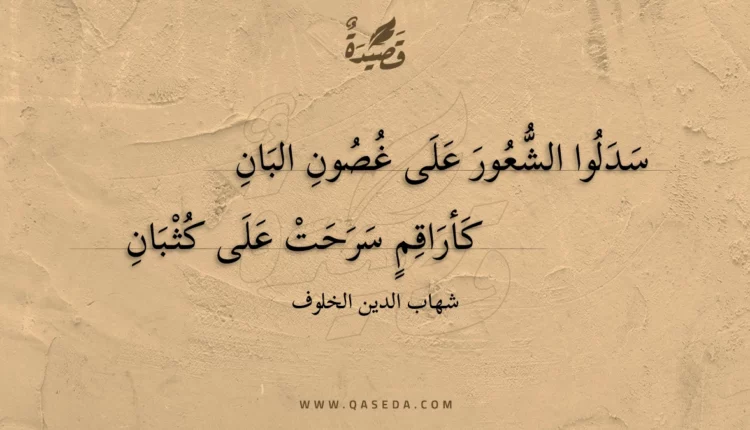 قَصِيدَةٌ
سَدَلُوا الشُّعُورَ عَلَى غُصُونِ البَانِ
كَأَرَاقِمٍ سَرَحَتْ عَلَى كُثْبَانِ
شهاب الدين الخلوف
WWW.QASEDA.COM